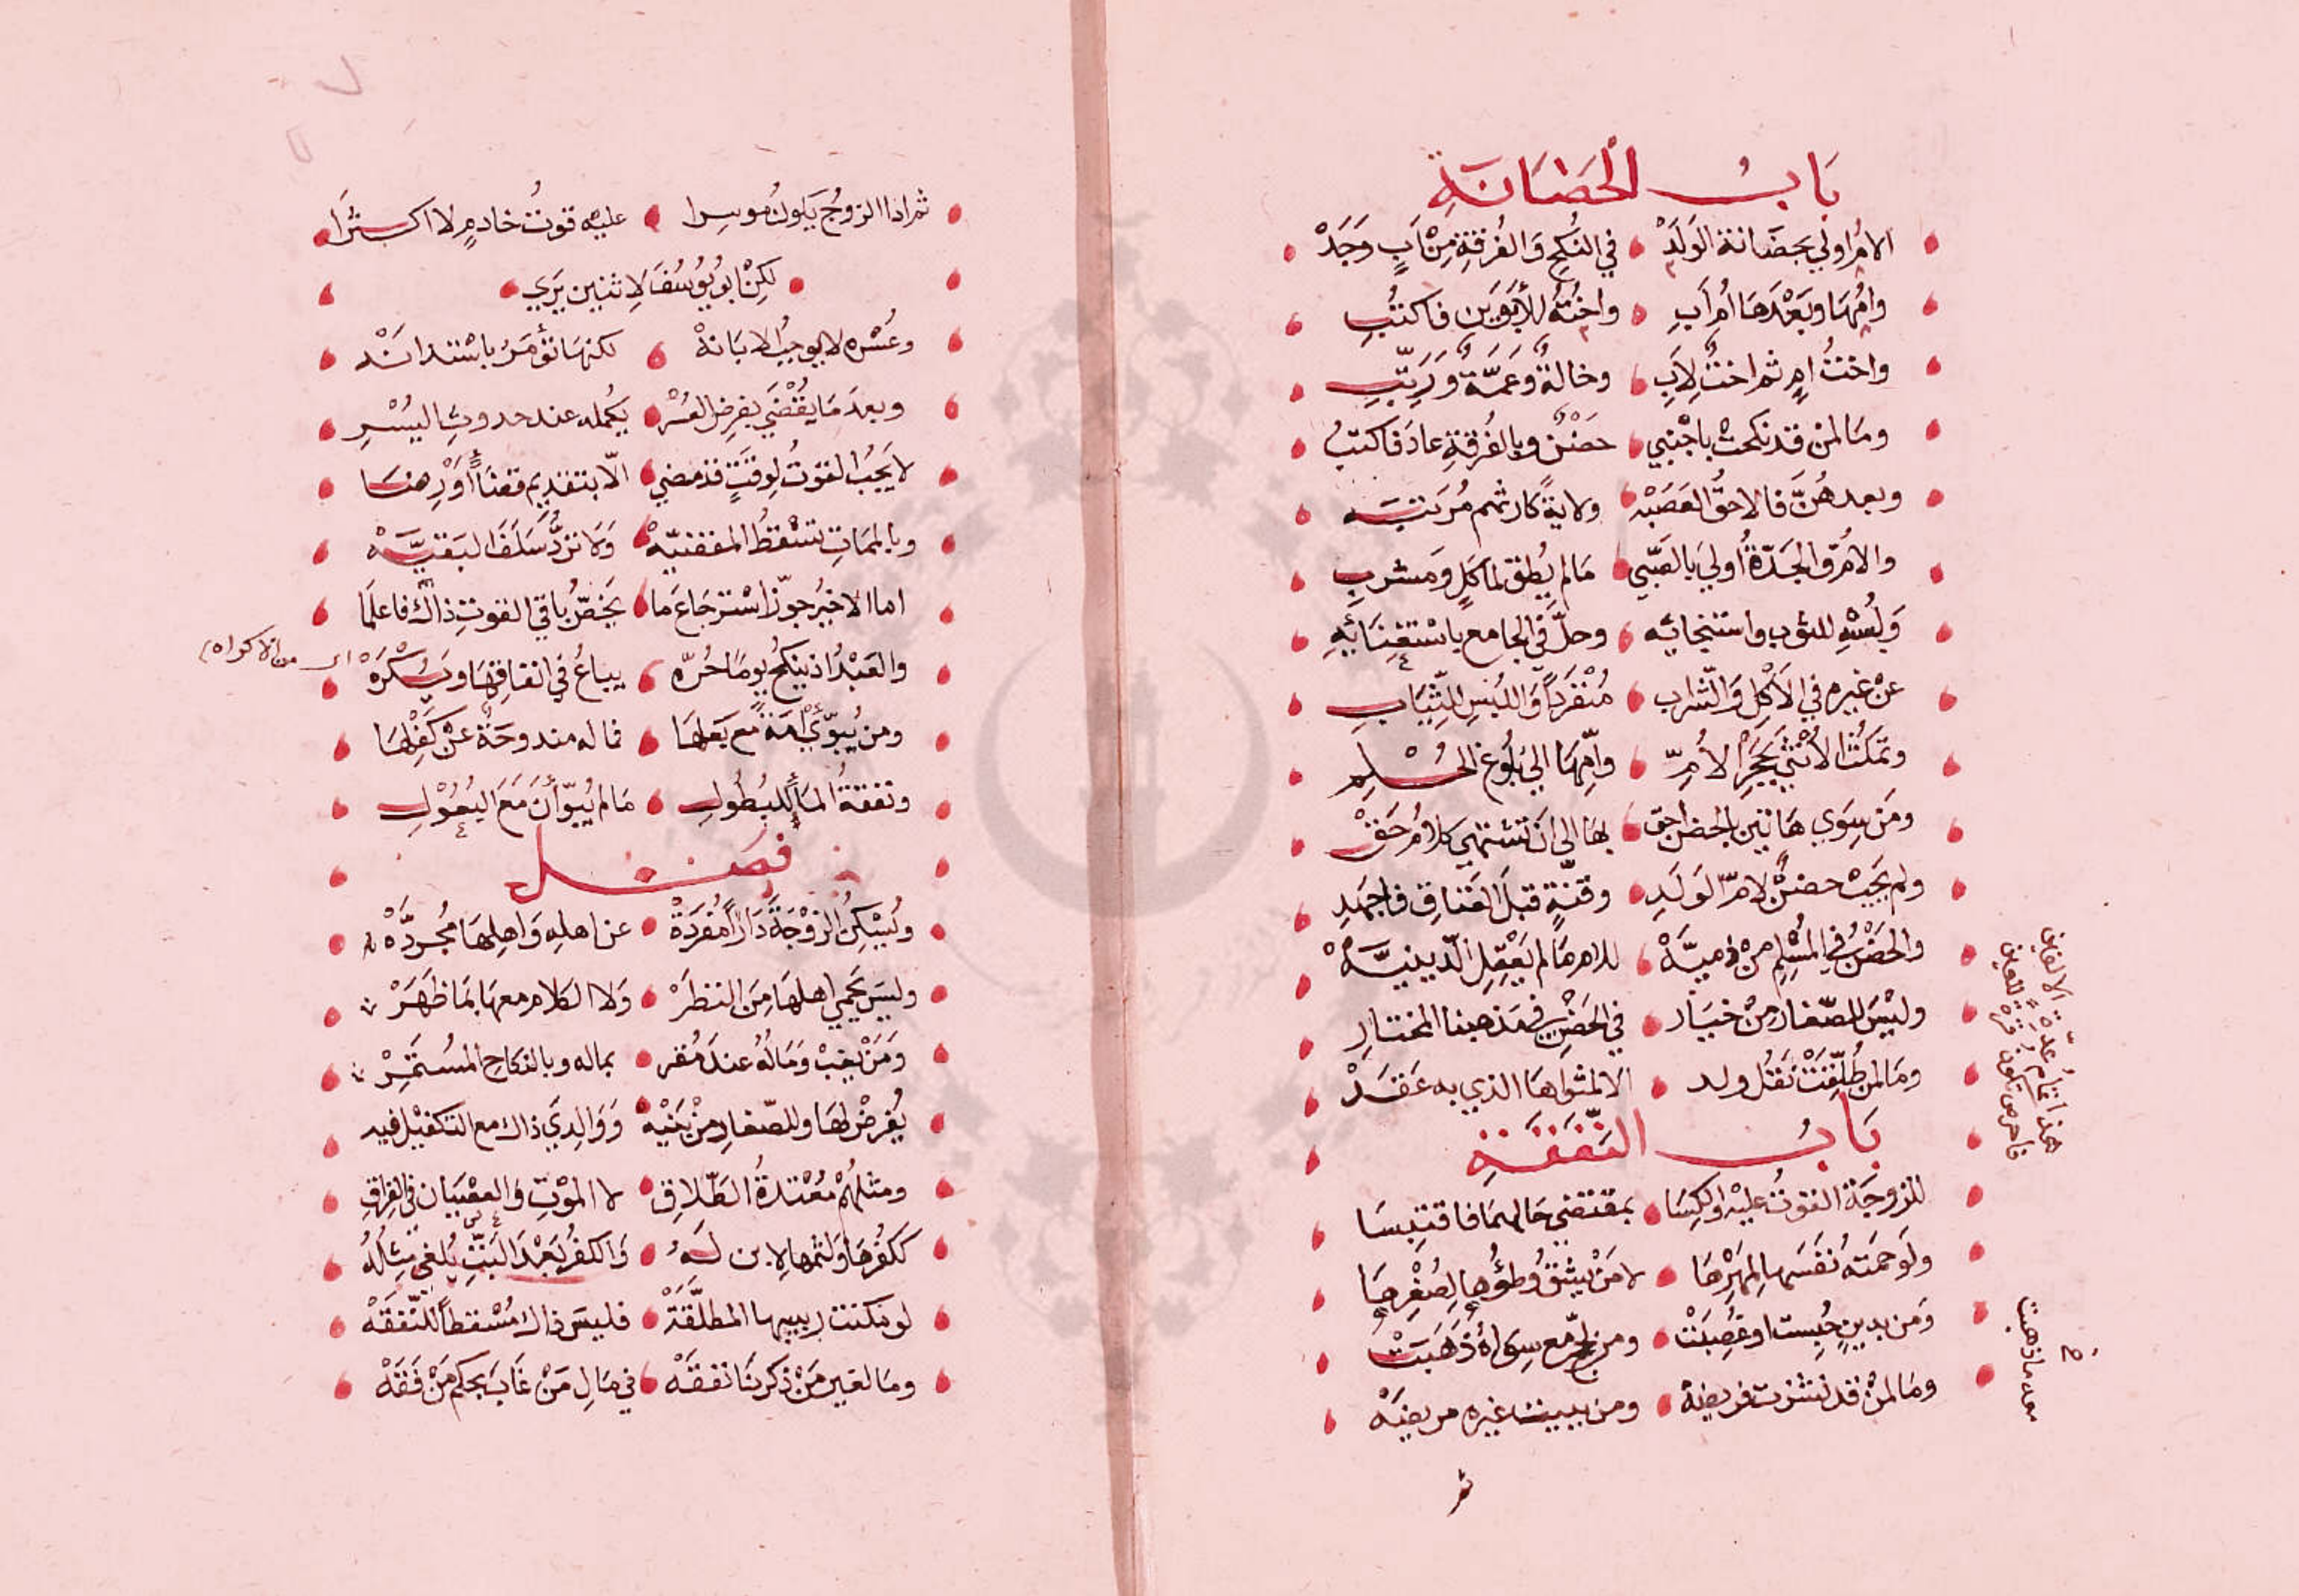 بَابُ الْحَضَانَةِ
الامُّ اولي بحضَانة الوَلَدْ في النكحِ وَالفُرقةِ مِنْ اَبٍ وَجَدْ
وامُّهَا وبَعْدَهَا اُم اَبِ واختُهُ للأبَوَينِ فاكتُبِ
واختُ امٍ ثم اختٌ لِاَبِ وخالةٌ وعَمَّةٌ ورَتِّبِ
ومَا لمن قد نكحتْ باجْنبي حضْنٌ وبالفُرقةِ عادَ فاكتبُ
وبعد هُنَّ فالاحقُّ العَصَبَهْ ولايةً كارثهم مُرَتبَه
والامُّ والجَدّةُ أولي بالصَّبي مَا لم يُطق لماكلٍ ومَشربِ
وَلُبْسِهِ للثوب واستنجائه وحلَّ في الجامع باسْتغنَائهِ
عنْ غيره في الاَكلِ وَالشراب مُنْفَرداً وَاللُبْسِ للثِّيَابِ
وتمكثُ الأُنْثَي بحَجرِ الأُمِّ وأمِّهَا الي بُلُوغ الحُلمِ
ومَن سِوَي هَاتين بالحضن احق بهَا الي ان تشتهي كلامُ حَقْ
ولم يجبْ حضنٌ لامّ لوَلَدِ وقنةٍ قبلَ العَتاقِ فاجهَدِ
والحَضْنُ في المُسْلِم منْ ذميَّهْ للام مَا لم يَعْقِلِ الدّينيَّهْ
وليْسَ للصّغار منْ خيَار في الحَضْنِ في مَذهبنا المختارِ
ومَا لمن طُلِّقتْ نَقْلُ ولد الا لمثواهَا الذي به عَقَدْ
بَابُ النَّفَقَةِ
للزوجَة القوتُ عليْه والكِسَا بمقتضي حَالهمَا فاقتبسَا
ولَو حَمَتهُ نَفسَهَا لِمَهْرِهَا لا مَنْ يشقُّ وطؤُها لِصُغْرِهَا
وَمَن بدينٍ حُبِست او غُصِبَتْ ومن لحجّ مع سِوَاهُ ذَهَبَتْ
ومَا لمنْ قد نشزت فريضة ومن ببيت غيره مريضَهْ
ثم
هذا تمامُ عدّة الالفين
فاحرص تكون قرةً للعين
معه ما ذهبت
ثم اذا الزوجُ يكونُ موسرا عليه قوتُ خادمٍ لا اكثرَا
لكنْ ابو يُوسُفَ لاثنين يَرَي
وعُسْره لا يوجبُ الابَانهْ لكنهَا تؤمَرُ باسْتدانَهْ
وبعدَ مَا يقْضَي بفرض العُسْر يكمله عند حدوث اليُسْرِ
لا يجبُ القوتُ لوقتٍ قد مضي الّا بتقديم قضَاً أوْ رضَا
وبالممَاتِ تسْقطُ المقضيّهْ وَلا تردُّ سَلَفَ البَقيَّهْ
اما الاخيرُ جوّز اسْترجَاعَ مَا يخصّ باقي القوتِ ذاك فاعلَمَا
والعَبْدُ اذ ينكحُ يومًا حُرّه يباعُ في انفاقهَا ويُكْرَهْ
من الاكراه
ومن يُبوّئْ أمَةً مع بَعلهَا فما له مندوحَةٌ عنْ كَفْلهَا
ونفقةُ الامَا للبُطُولِ مَا لم يُبوّأْنَ مَعَ البُعُوْلِ
فصَل
ولْيُسْكنِ الزوْجَةَ دَارًا مُفرَدَةْ عن اهلهِ وَاهلِهَا مُجرَّدَهْ
وليسَ يَحمي اهلهَا منَ النظرْ وَلا الكلام معهَا بمَا ظَهَرْ
وَمَنْ يَغِبْ وَمَالُهُ عندَ مُقر بماله وبالنكاح المُستَمِرْ
يُفرَضْ لهَا وللصّغار منْ بَنيْه وَوَالِدِي ذاك مع التكفيْل فيه
ومثلهُمْ مُعْتدةُ الطّلاقِ لا الموْتِ وَالعصْيَان في الفراقِ
ككفرهَا ولثمهَا لابن لَهُ وَالكفرُ بَعْدَ البَتِّ يُلغى مثلهُ
لو مكنت ربيبهَا المطلَّقَهْ فليسَ ذاك مُسْقطاً للنّفقَهْ
ومَا لغير مَنْ ذكرنَا نفقَهْ في مَالِ مَنْ غَابَ بحكم مَنْ فَقَهْ